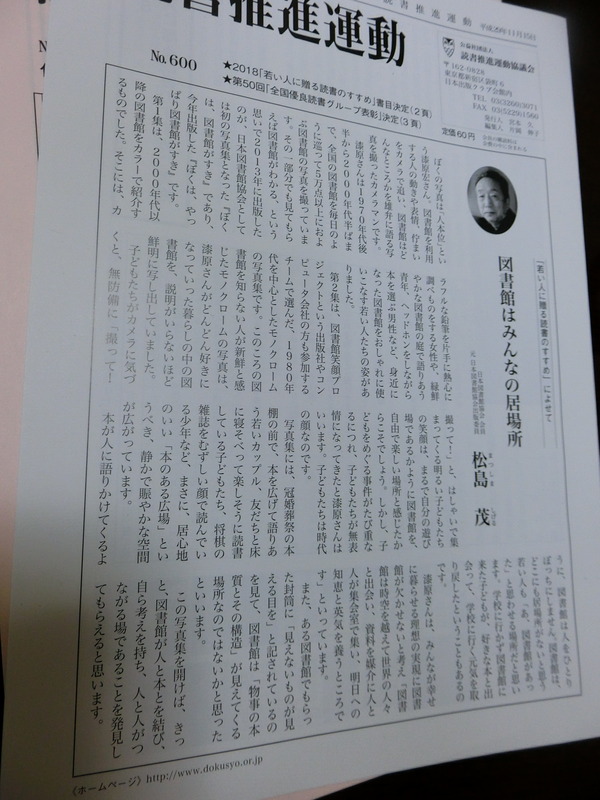 読書推進運動
平成29年11月15日
書推進運動
No.600
★2018「若い人に贈る読書のすすめ」書目決定(2頁)
★第50回「全国優良読書グループ表彰」決定(3頁)
公益社団法人
読書推進運動協議会
〒162-0828
東京都新宿区袋町6
日本出版クラブ会館内
TEL 03(3260)3071
FAX 03(5229)1560
定価60円
「若い人に贈る読書のすすめ」によせて
図書館はみんなの居場所
日本図書館協会 会員
松島 茂
まつしま しげる
ぼくの写真は「人本位」とい
う漆原宏さん。図書館を利用
する人の動きや表情、佇まい
をカメラで追い、図書館はど
んなところかを雄弁に語る写
真を撮ったカメラマンです。
漆原さんは1970年代後
半から2000年代半ばま
で、全国の図書館を毎日のよ
うに巡って5万点以上におよ
ぶ図書館の写真を撮っていま
す。その一部分でも見てもら
えば図書館がわかる、という
思いで2013年に出版した
のが、日本図書館協会として
は初の写真集となった『ぼく
は、図書館がすき』であり、
今年出版した『ぼくは、やっ
ぱり図書館がすき』です。
第1集は、2000年代以
降の図書館をカラーで紹介す
るものでした。そこには、カ
ラフルな鉛筆を片手に熱心に
調べものをする女性や、緑鮮
やかな図書館の庭で語りあう
青年、ヘッドホンをしながら
本を選ぶ男性など、身近に
なった図書館をおしゃれに使
いこなす若い人たちの姿があ
りました。
第2集は、図書館笑顔プロ
ジェクトという出版社やコン
ピュータ会社の方も参加する
チームで選んだ、1980年
代を中心としたモノクローム
の写真集です。このころの図
書館を知らない人が新鮮と感
じたモノクロームの写真は、
漆原さんがどんどん好きに
なっていった暮らしの中の図
書館を、説明がいらないほど
鮮明に写し出していました。
子どもたちがカメラに気づ
くと、無防備に「撮って!
撮って!」と、はしゃいで集
まってくる明るい子どもたち
の笑顔は、まるで自分の遊び
場であるかように図書館を、
自由で楽しい場所と感じたか
らこそでしょう。しかし、子
どもをめぐる事件がたび重な
るにつれ、子どもたちが無表
情になってきたと漆原さんは
いいます。子どもたちは時代
の顔なのです。
写真集には、冠婚葬祭の本
棚の前で、本を広げて語りあ
う若いカップル、友だちと床
に寝そべって楽しそうに読書
している子どもたち、将棋の
雑誌をむずしい顔で読んでい
る少年など、まさに、居心地
のいい「本のある広場」とい
うべき、静かで賑やかな空間
が広がっています。
本が人に語りかけてくるよ
うに、図書館は人をひとり
ぼっちにしません。図書館は、
どこにも居場所がないと思う
若い人も「あ、図書館があっ
た」と思わせる場所だと思い
ます。学校に行かず図書館に
来た子どもが、好きな本と出
会って、学校に行く元気を取
り戻したということもあるの
です。
漆原さんは、みんなが幸せ
に暮らせる理想の実現に図書
館が欠かせないと考え「図書
館は時空を越えて世界の人々
と出会い、資料を媒介に人と
人が集会室で集い、明日への
知恵と英気を養うところで
す」といっています。
また、ある図書館でもらっ
た封筒に「見えないものが見
える目を」と記されているの
を見て、図書館は「物事の本
質とその構造」が見えてくる
場所なのではないかと思った
といいます。
この写真集を開けば、きっ
と、図書館が人と本とを結び、
自ら考えを持ち、人と人がつ
ながる場であることを発見し
てもらえると思います。
〈ホームページ〉http://www.dokusyo.or.jp